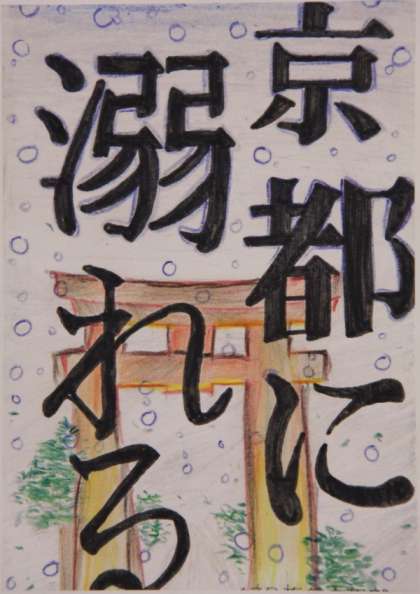 京都に
溺れる